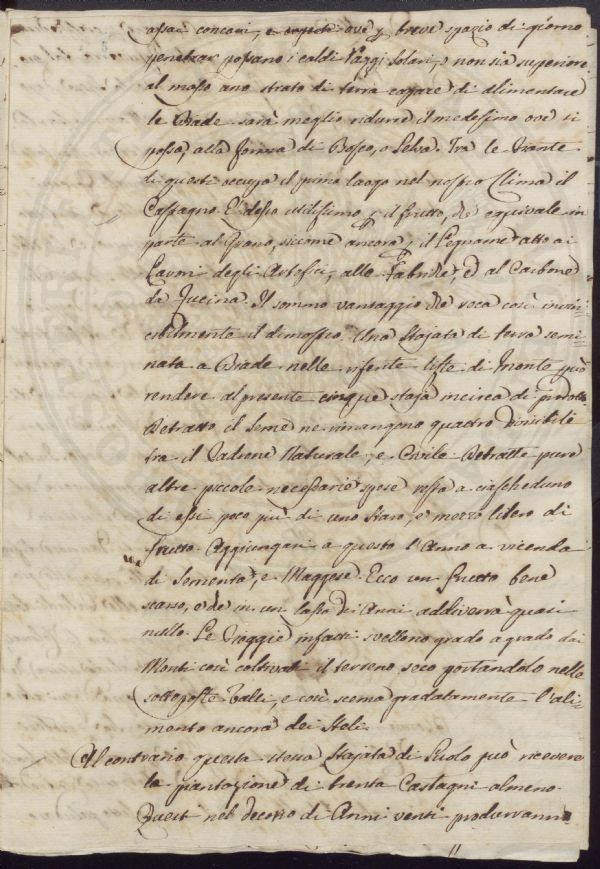 assai concavi, ove p breve spazio di giorno
penetrar possano i caldi Raggi Solari, o non sia superiore
al masso uno strato di terra capace di alimentare
le Biade sarà meglio ridurre il medesimo ove si
possa, alla forma di Bosco, o Selva. Tra le Piante
di questi occupa il primo luogo nel nostro Clima il
Castagno. È desso utilissimo p il frutto, che equivale in
parte al Grano, siccome ancora p il Legname atto ai
Lavori degli Artefici, alle Fabriche, e al Carbone
da Fucina. Il sommo vantaggio che reca così invin=
cibilmente il dimostro. Una Stajata di terra semi=
nata a Biade nelle riferite liste di Monte può
rendere al presente cinque staja incirca di prodotto
Detratto il Seme ne rimangono quattro divisibili
tra il Padrone Naturale, e Civile. Detratte pure
altre piccole necessarie spese resta a ciascheduno
di essi poco più di uno Staro, e mezzo libero di
frutto. Aggiungasi a questo l'Anno a vicenda
di Sementa, e Maggese. Ecco un frutto bene
scarso, e che in un lasso di Anni addiverrà quasi
nullo. Le Pioggie infatti svellono grado a grado dai
Monti così coltivati il terreno, seco portandolo nelle
sottoposte Valli, e così scema gradatamente l'ali=
mento ancora dei Steli.
Al contrario questa stessa Stajata di Suolo può ricevere
la piantazione di trenta Castagni almeno.
Questi nel decorso di Anni venti produrranno